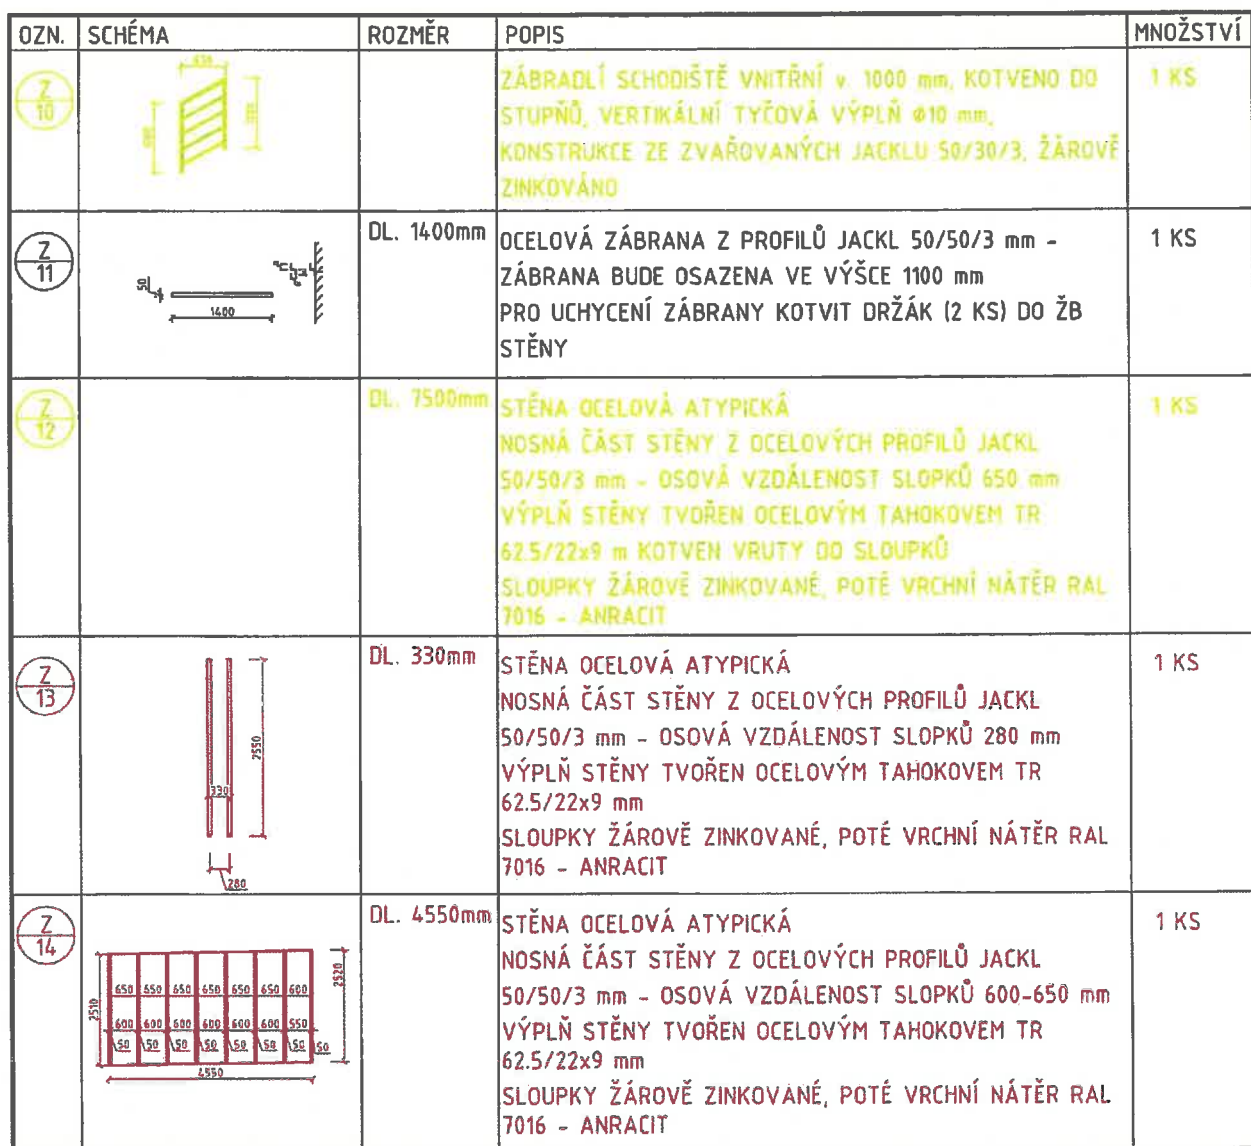 OZN. SCHÉMA ROZMĚR POPIS MNOŽSTVÍ
Z
10
ZÁBRADLÍ SCHODIŠTĚ VNITŘNÍ v. 1000 mm, KOTVENO DO
STUPŇŮ, VERTIKÁLNÍ TYČOVÁ VÝPLŇ Φ10 mm,
KONSTRUKCE ZE ZVAŘOVANÝCH JACKLU 50/30/3, ŽÁROVĚ
ZINKOVÁNO
1 KS
Z
11
50
1400
DL. 1400mm
OCELOVÁ ZÁBRANA Z PROFILŮ JACKL 50/50/3 mm -
ZÁBRANA BUDE OSAZENA VE VÝŠCE 1100 mm
PRO UCHYCENÍ ZÁBRANY KOTVIT DRŽÁK (2 KS) DO ŽB
STĚNY
1 KS
Z
12
DL. 7500mm
STĚNA OCELOVÁ ATYPICKÁ
NOSNÁ ČÁST STĚNY Z OCELOVÝCH PROFILŮ JACKL
50/50/3 mm - OSOVÁ VZDÁLENOST SLOPKŮ 650 mm
VÝPLŇ STĚNY TVOŘEN OCELOVÝM TAHOKOVEM TR
62.5/22x9 m KOTVEN VRUTY DO SLOUPKŮ
SLOUPKY ŽÁROVĚ ZINKOVANÉ, POTÉ VRCHNÍ NÁTĚR RAL
7016 - ANRACIT
1 KS
Z
13
2550
330
280
DL. 330mm
STĚNA OCELOVÁ ATYPICKÁ
NOSNÁ ČÁST STĚNY Z OCELOVÝCH PROFILŮ JACKL
50/50/3 mm - OSOVÁ VZDÁLENOST SLOPKŮ 280 mm
VÝPLŇ STĚNY TVOŘEN OCELOVÝM TAHOKOVEM TR
62.5/22x9 mm
SLOUPKY ŽÁROVĚ ZINKOVANÉ, POTÉ VRCHNÍ NÁTĚR RAL
7016 - ANRACIT
1 KS
Z
14
2510
2520
650 650 650 650 650 650 600
600 600 600 600 600 600 550
50 50 50 50 50 50 50 50
4550
DL. 4550mm
STĚNA OCELOVÁ ATYPICKÁ
NOSNÁ ČÁST STĚNY Z OCELOVÝCH PROFILŮ JACKL
50/50/3 mm - OSOVÁ VZDÁLENOST SLOPKŮ 600-650 mm
VÝPLŇ STĚNY TVOŘEN OCELOVÝM TAHOKOVEM TR
62.5/22x9 mm
SLOUPKY ŽÁROVĚ ZINKOVANÉ, POTÉ VRCHNÍ NÁTĚR RAL
7016 - ANRACIT
1 KS